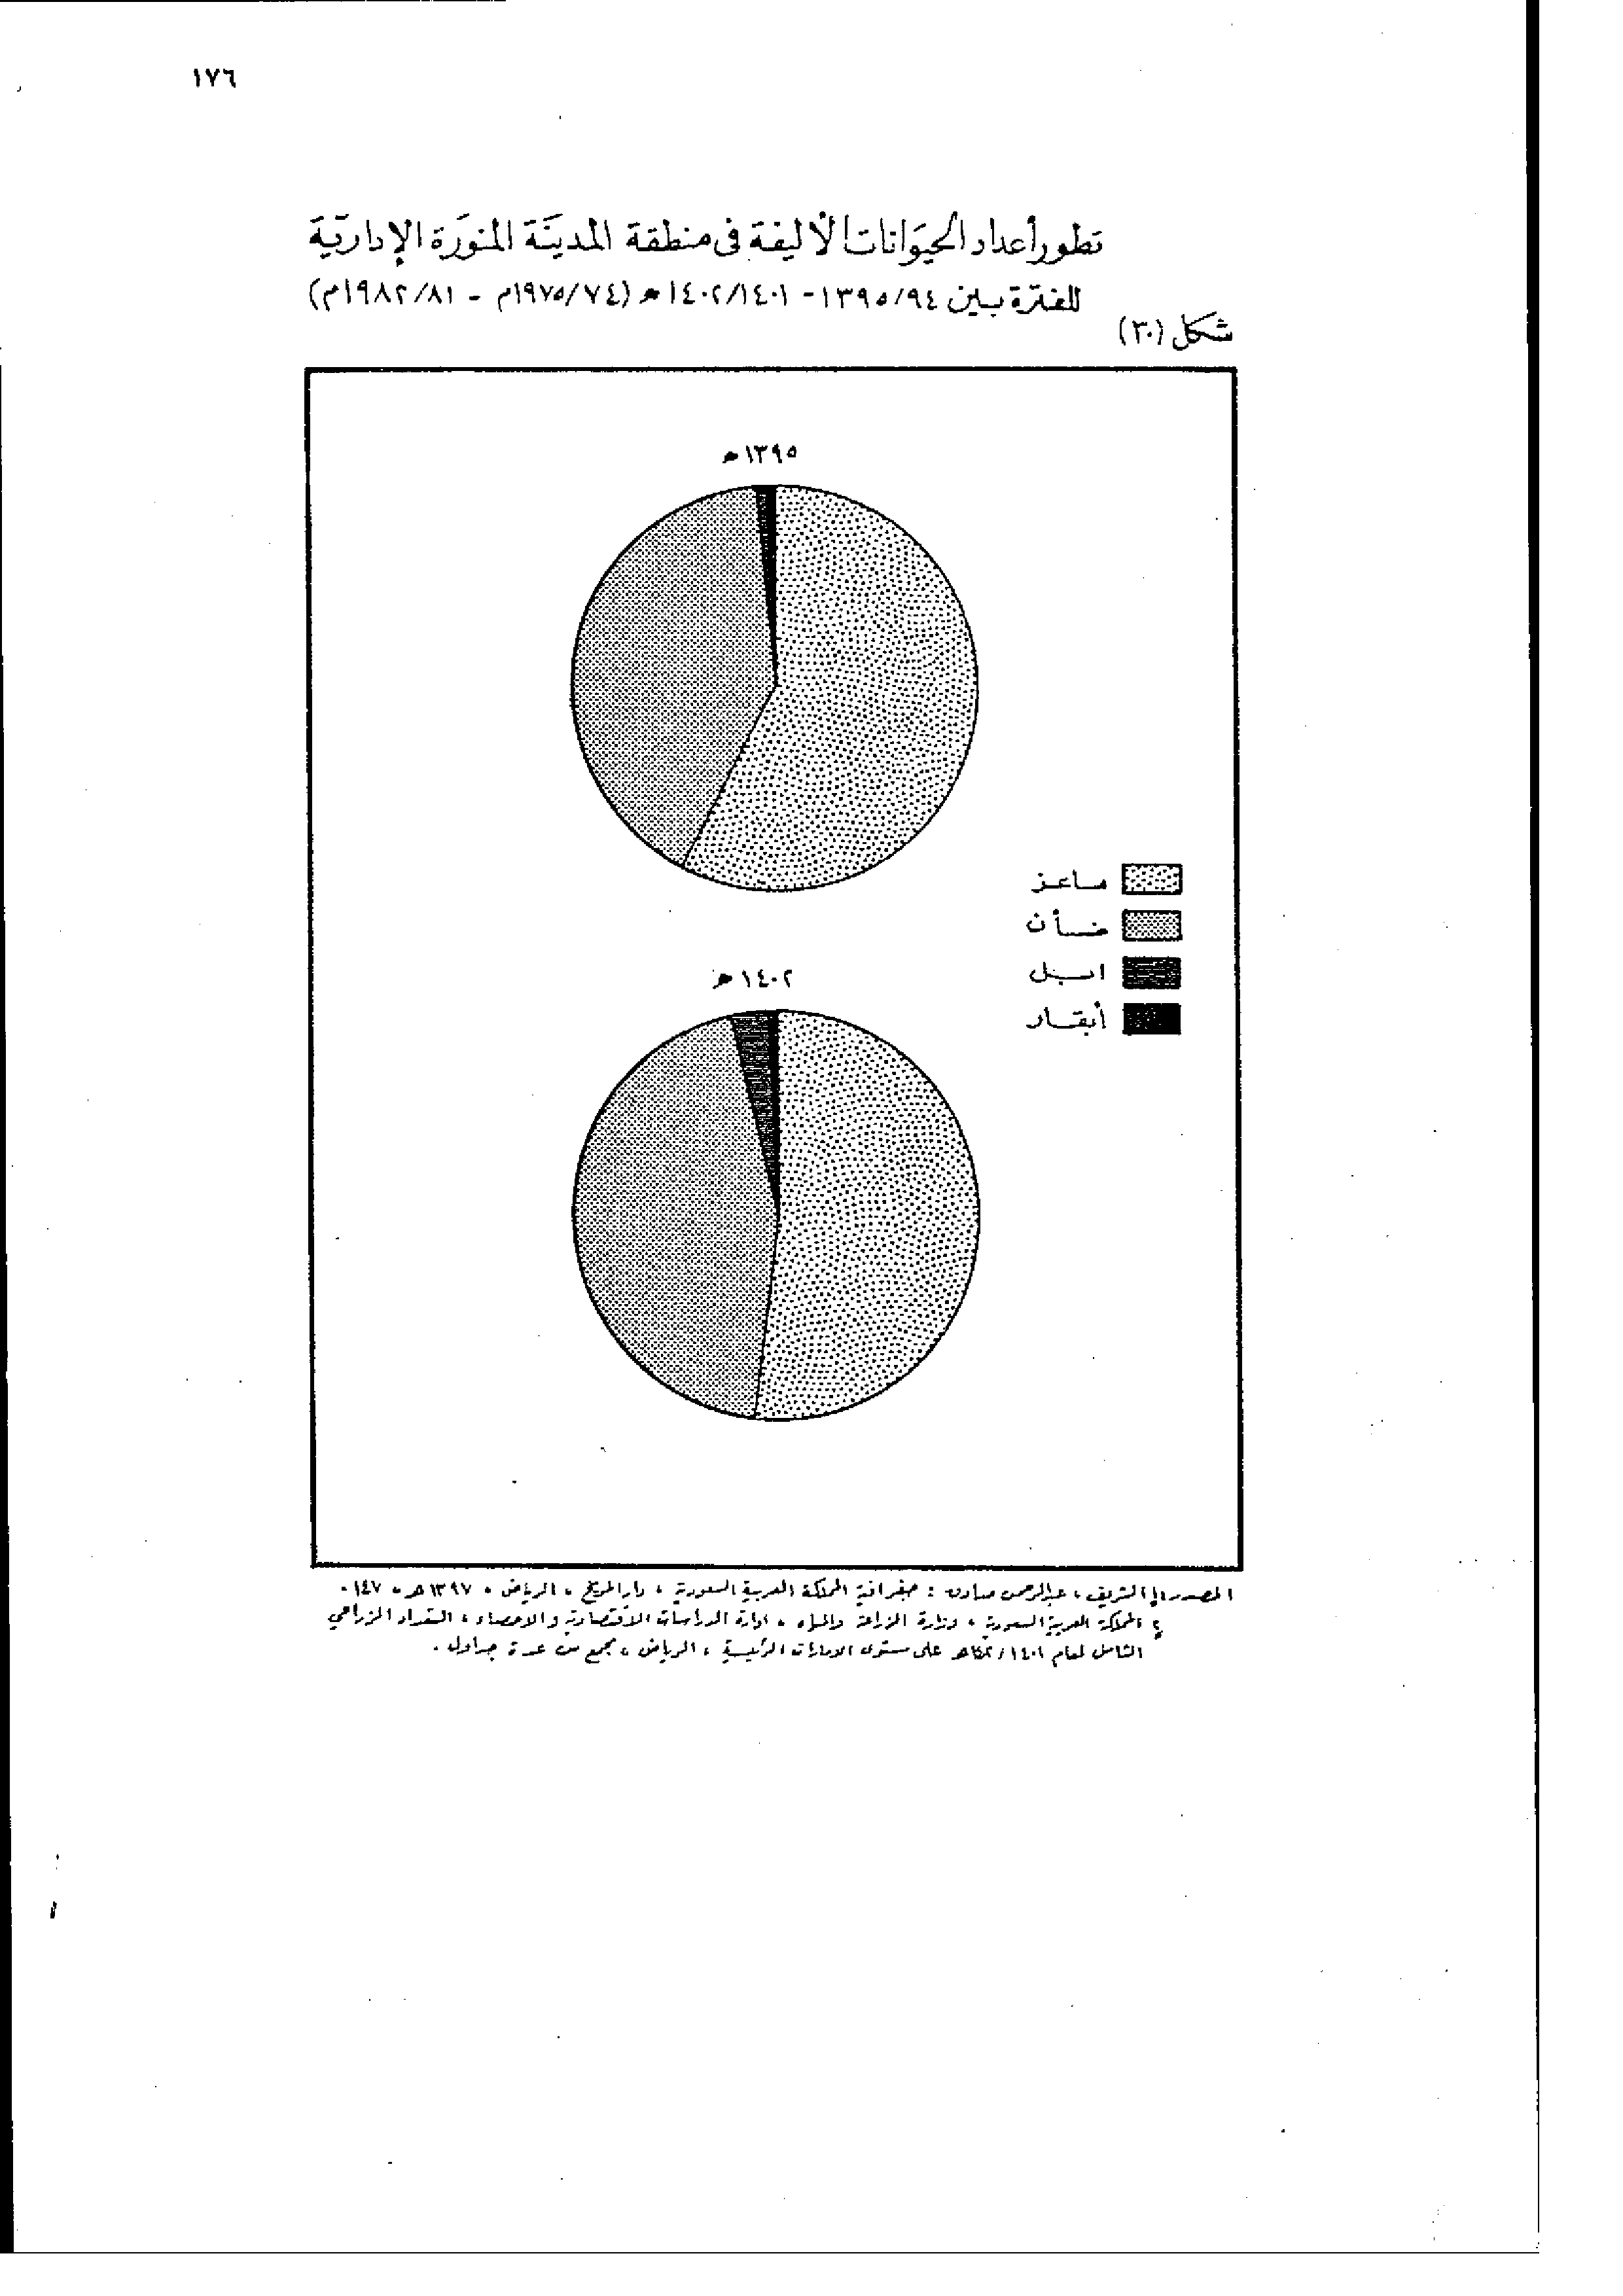 ١٧٦
تطور أعداد الحيوانات الأليفة فى منطقة المدينة المنورة الإدارية
للفترة بين ١٣٩٥/٩٤ - ١٤٠٢/١٤٠١ هـ (١٩٧٥/٧٤م - ١٩٨٢/٨١م)
شكل (٣٠)
١٣٩٥ هـ
ماعز
ضأن
ابل
أبقار
١٤٠٢ هـ
المصدر: ١ الشريف ، عبدالرحمن صادق : جغرافية المملكة العربية السعودية ، دار المريخ ، الرياض ، ١٣٩٧ هـ ، ١٤٧ .
٢ المملكة العربية السعودية ، وزارة الزراعة والمياه ، ادارة الدراسات الاقتصادية والاحصاء ، التعداد الزراعي
الشامل لعام ١٤٠١/ هـ على مستوى الامارات الرئيسية ، الرياض ، مجمع من عدة جداول .